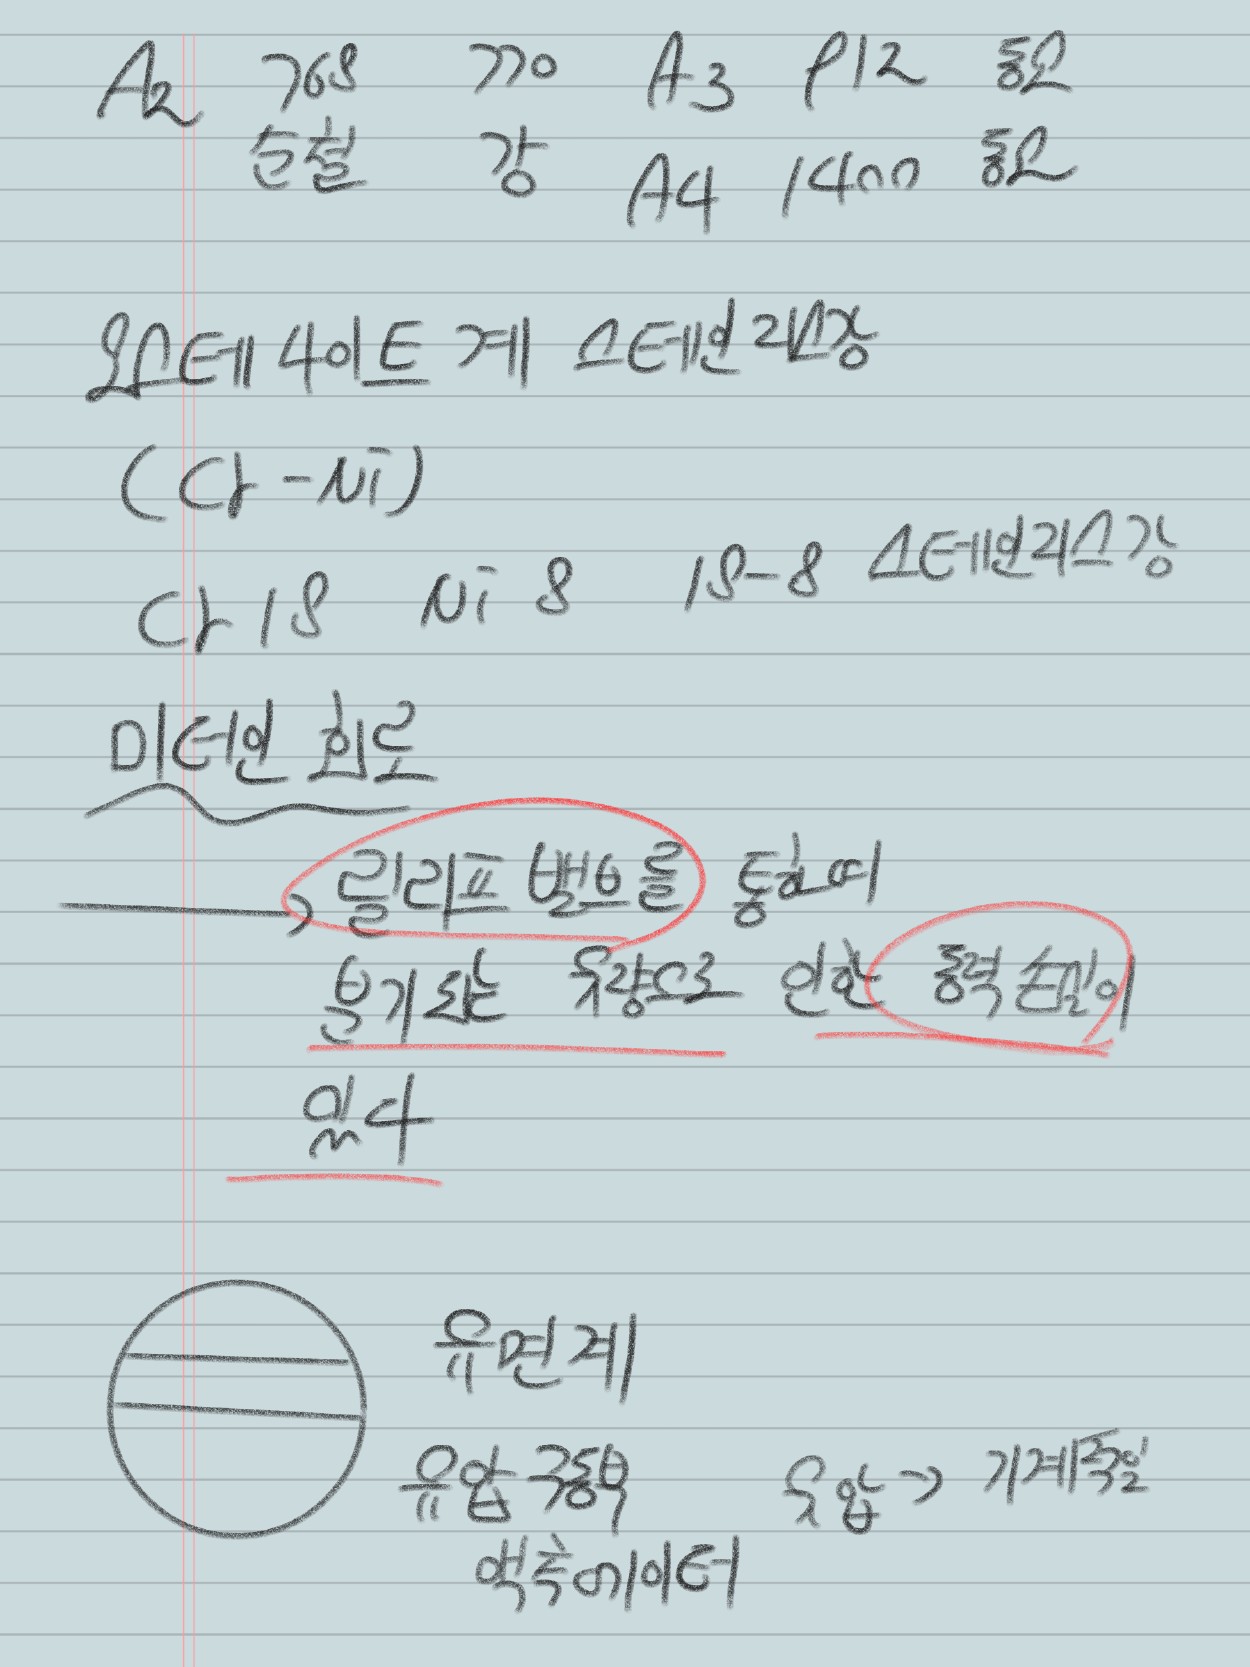 A2 768 770 A3 912 중요
순철 강 A4 1400 중요
오스테나이트 계 스테인리스강
(Cr-Ni)
Cr 18 Ni 8 18-8 스테인리스강
미터인 회로
→ 릴리프 밸브를 통하여
분기되는 유량으로 인한 동력손실이
있다
유면계
유압 구동부 유압→기계적일
액츄에이터